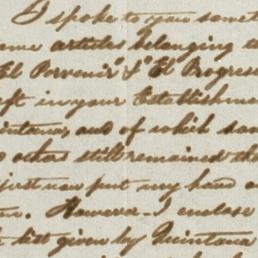 I spoke to you somet
ome articles belonging to
El Porvenir & El Progres
eft in your Establishme
uintana, and of which som
o others still remained the
just now put my hand o
However I enclose
list given by Quintana